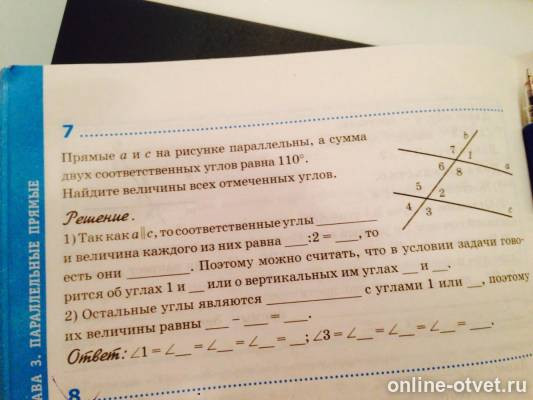 ГЛАВА 3. ПАРАЛЛЕЛЬНЫЕ ПРЯМЫЕ
7
Прямые a и c на рисунке параллельны, а сумма
двух соответственных углов равна 110°.
Найдите величины всех отмеченных углов.
b
7 1
6 8
a
5
2
4 3
c
Решение.
1) Так как a∥c, то соответственные углы ________
и величина каждого из них равна ___:2 = ___, то
есть они ________. Поэтому можно считать, что в условии задачи гово-
рится об углах 1 и __ или о вертикальных им углах __ и __.
2) Остальные углы являются ____________ с углами 1 или __, поэтому
их величины равны ___ – ___ = ___.
Ответ: ∠1 = ∠__ = ∠__ = ∠__ = __; ∠3 = ∠__ = ∠__ = ∠__ = ___.
8
online-otvet.ru